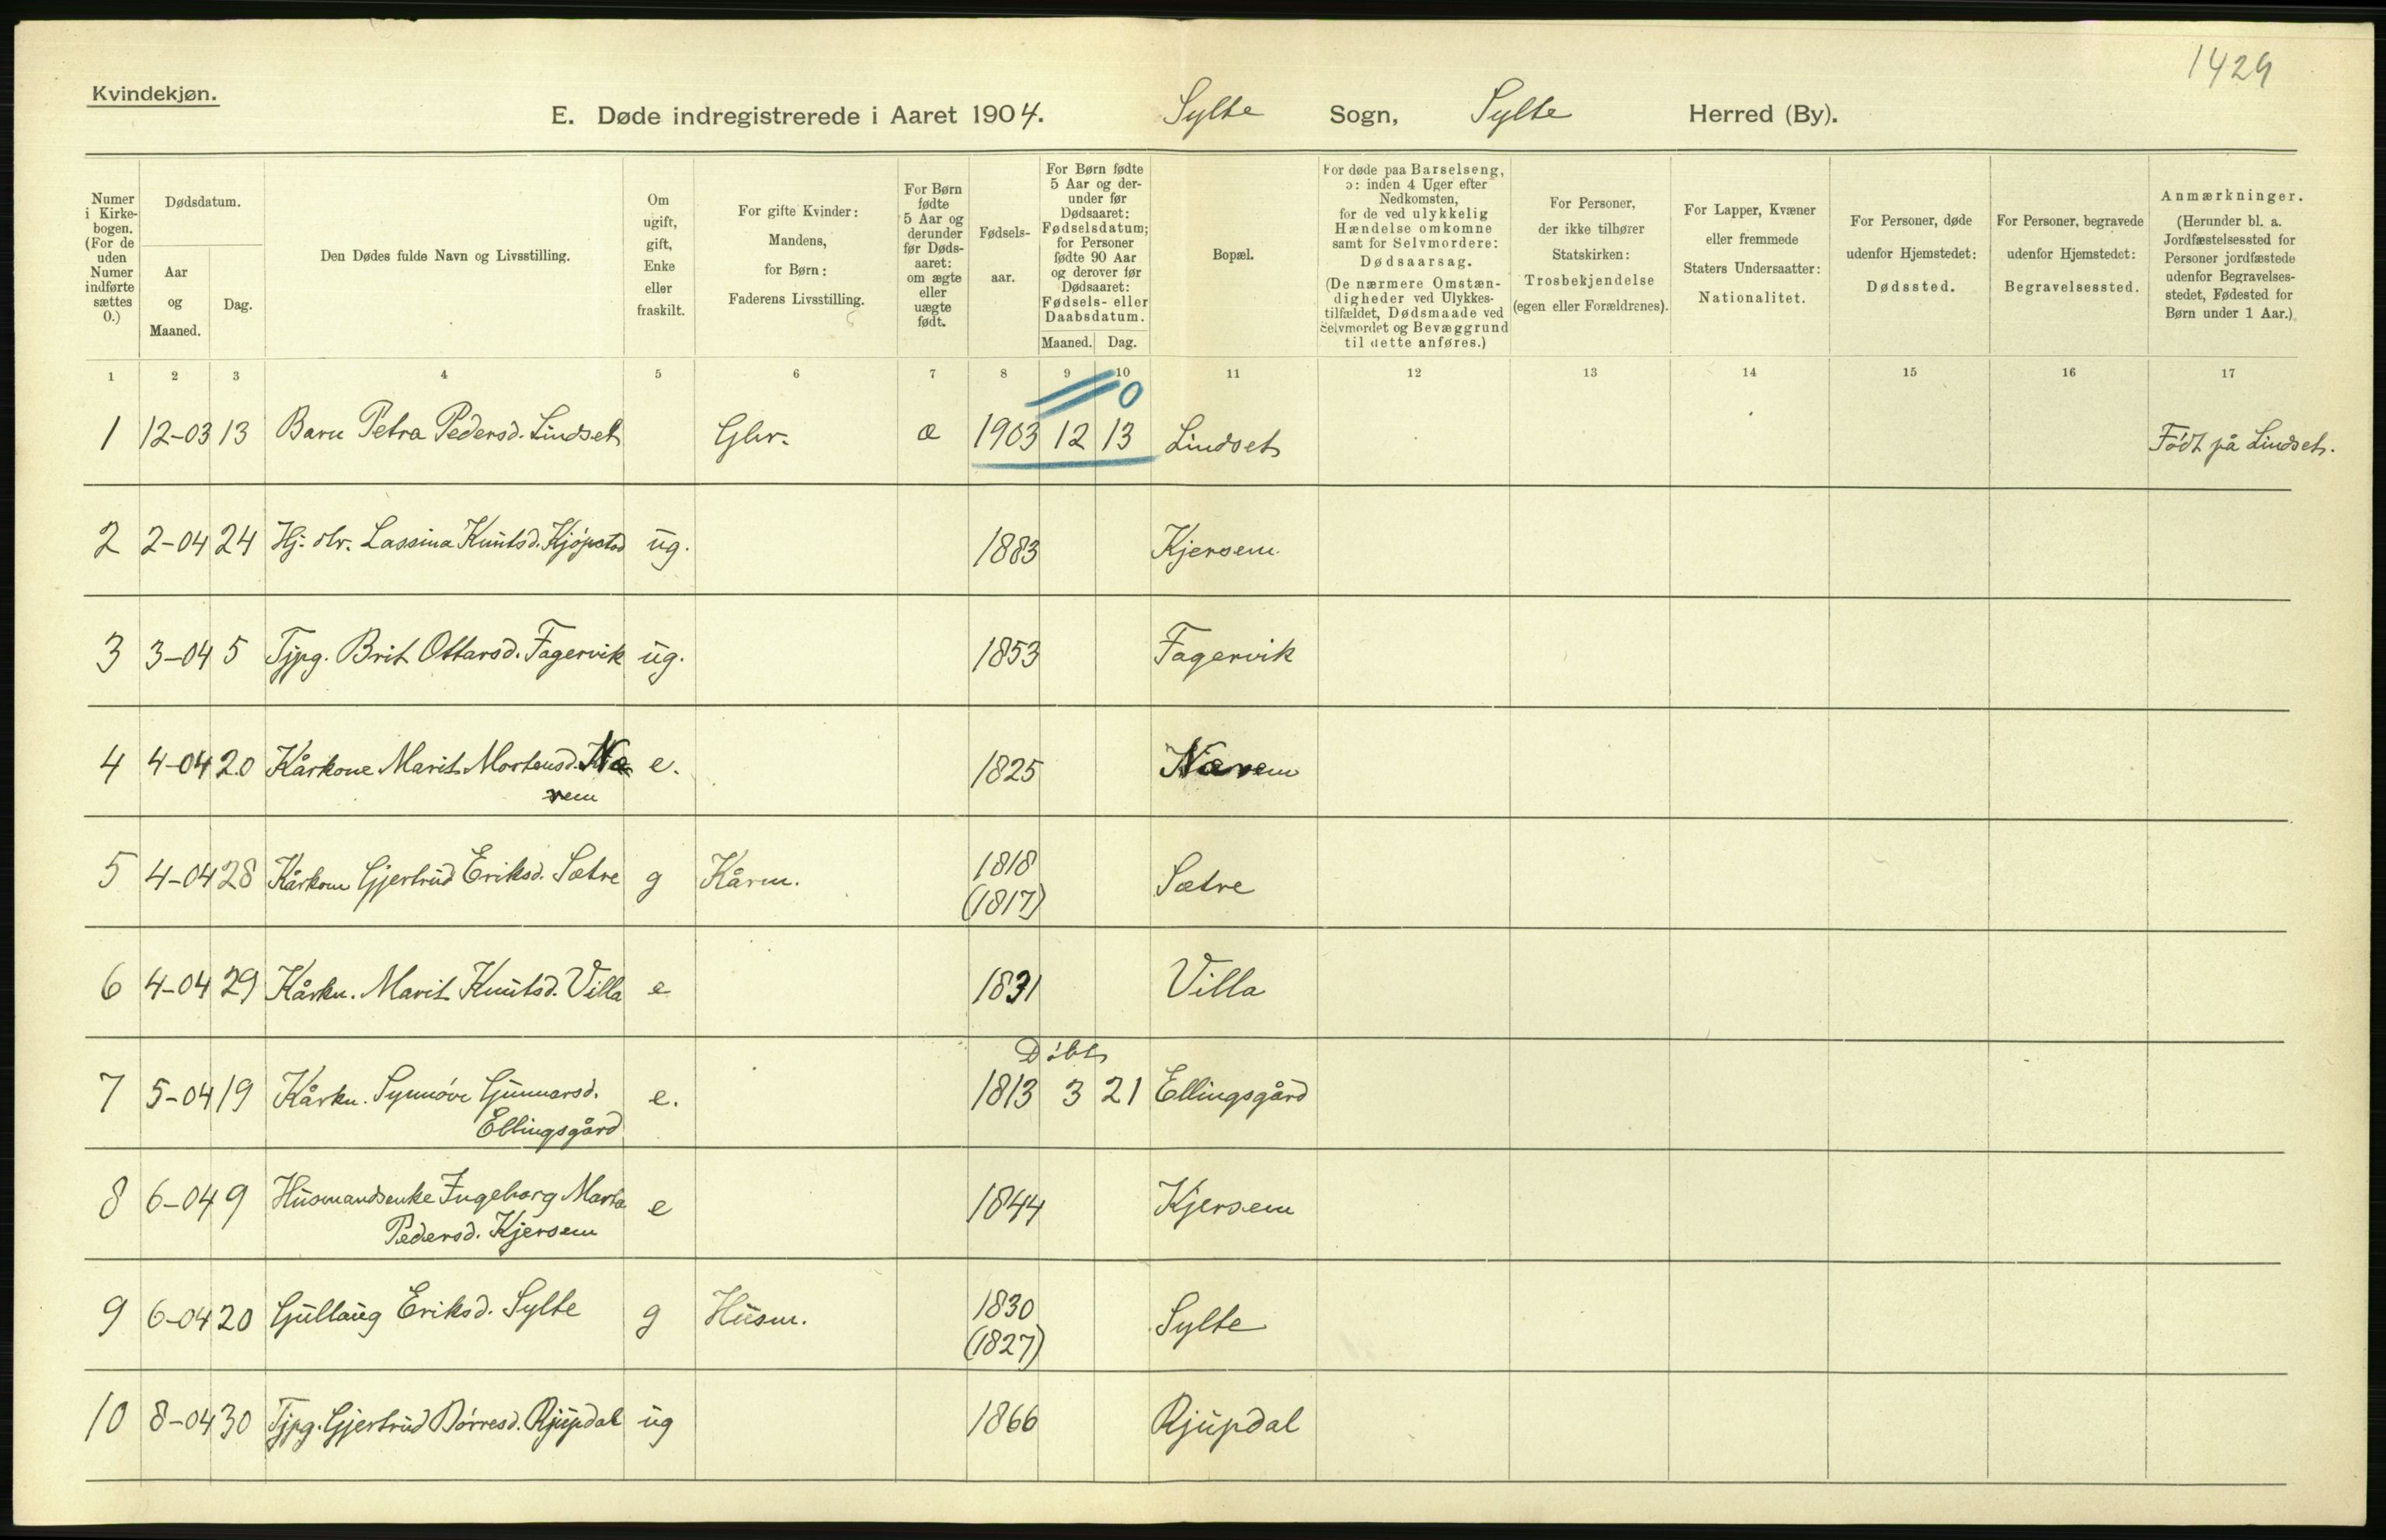 1429
Kvindekjøn.
E. Døde indregistrerede i Aaret 1904. Sylte Sogn, Sylte Herred (By).
Numer i Kirke-bogen. (For de uden Numer indførte sættes 0.)
Dødsdatum.
Aar og Maaned.
Dag.
Den Dødes fulde Navn og Livsstilling.
Om ugift, gift, Enke eller fraskilt.
For gifte Kvinder: Mandens, for Børn: Faderens Livsstilling.
For Børn fødte 5 Aar og derunder før Døds-aaret: om ægte eller uægte født.
Fødsels-aar.
For Børn fødte 5 Aar og der-under før Dødsaaret: Fødselsdatum; for Personer fødte 90 Aar og derover før Dødsaaret: Fødsels- eller Daabsdatum.
Maaned. Dag.
Bopæl.
For døde paa Barselseng, ɔ: inden 4 Uger efter Nedkomsten, for de ved ulykkelig Hændelse omkomne samt for Selvmordere: Dødsaarsag.
(De nærmere Omstæn-digheder ved Ulykkes-tilfældet, Dødsmaade ved Selvmordet og Bevæggrund til dette anføres.)
For Personer, der ikke tilhører Statskirken: Trosbekjendelse (egen eller Forældrenes).
For Lapper, Kvæner eller fremmede Staters Undersaatter: Nationalitet.
For Personer, døde udenfor Hjemstedet: Dødssted.
For Personer, begravede udenfor Hjemstedet: Begravelsessted.
Anmærkninger. (Herunder bl. a. Jordfæstelsessted for Personer jordfæstede udenfor Begravelses-stedet, Fødested for Børn under 1 Aar.)
1 2 3 4 5 6 7 8 9 10 11 12 13 14 15 16 17
0
1 12-03 13 Barn Petra Pedersd. Lindset Gbr. æ 1903 12 13 Lindset Født på Lindset.
2 2-04 24 Hj. Lassina Knutsd. Kjøpstad ug. 1883 Kjersem
3 3-04 5 Tjpg. Brit Ottarsd. Fagervik ug. 1853 Fagervik
4 4-04 20 Kårkone Marit Mortensd. Næ e. 1825 Nærem
rem
5 4-04 28 Kårkone Gjertrud Eriksd. Sætre g Kårm. 1818 Sætre
(1817)
6 4-04 29 Kårkn. Marit Knutsd. Villa e 1831 Villa
Døbt
7 5-04 19 Kårkn. Synnøve Gunnarsd. e. 1813 3 21 Ellingsgård
Ellingsgård
8 6-04 9 Husmandsenke Ingeborg Marta e 1844 Kjersem
Pedersd. Kjersem
9 6-04 20 Gullaug Eriksd. Sylte g Husm. 1830 Sylte
(1827)
10 8-04 30 Tjpg. Gjertrud Børresd. Rjupdal ug 1866 Rjupdal